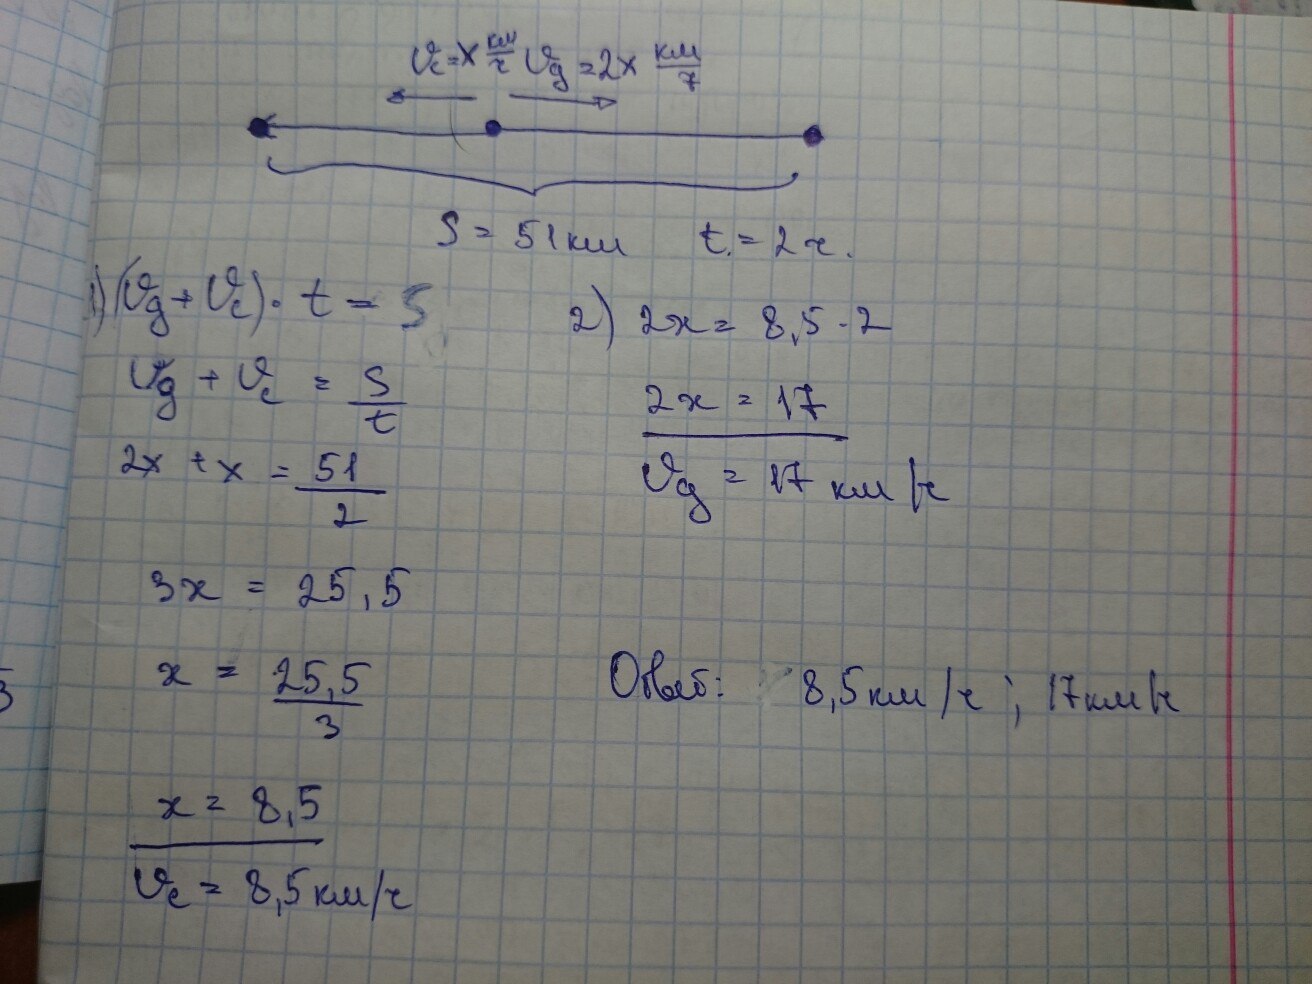 υс = x км/ч υд = 2x км/ч
S = 51 км t = 2 ч.
1) (υд + υс) · t = S
υд + υс = S/t
2x + x = 51/2
3x = 25,5
x = 25,5/3
x = 8,5
υс = 8,5 км/ч
2) 2x = 8,5 · 2
2x = 17
υд = 17 км/ч
Ответ: 8,5 км/ч ; 17 км/ч